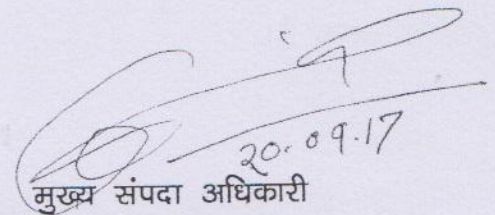 20.09.17
मुख्य संपदा अधिकारी